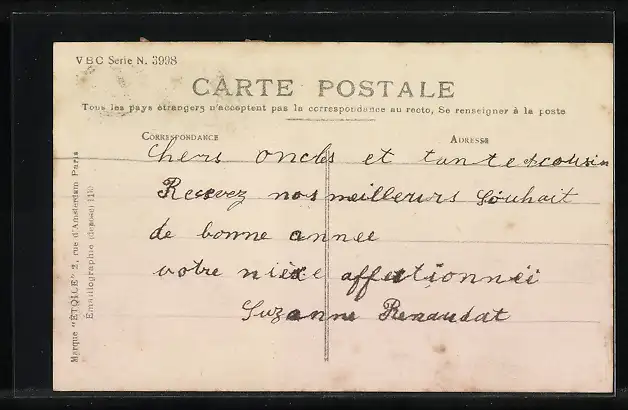 VBC Serie N. 3998
CARTE POSTALE
Tous les pays étrangers n'acceptent pas la correspondance au recto, Se renseigner à la poste
CORRESPONDANCE
ADRESSE
chers oncles et tante et cousin
Recevez nos meilleurs Souhait
de bonne annee
votre nièce affectionnée
Suzanne Renaudat
Marque "ÉTOILE" 2, rue d'Amsterdam Paris
Émaillographie (déposé) 1110